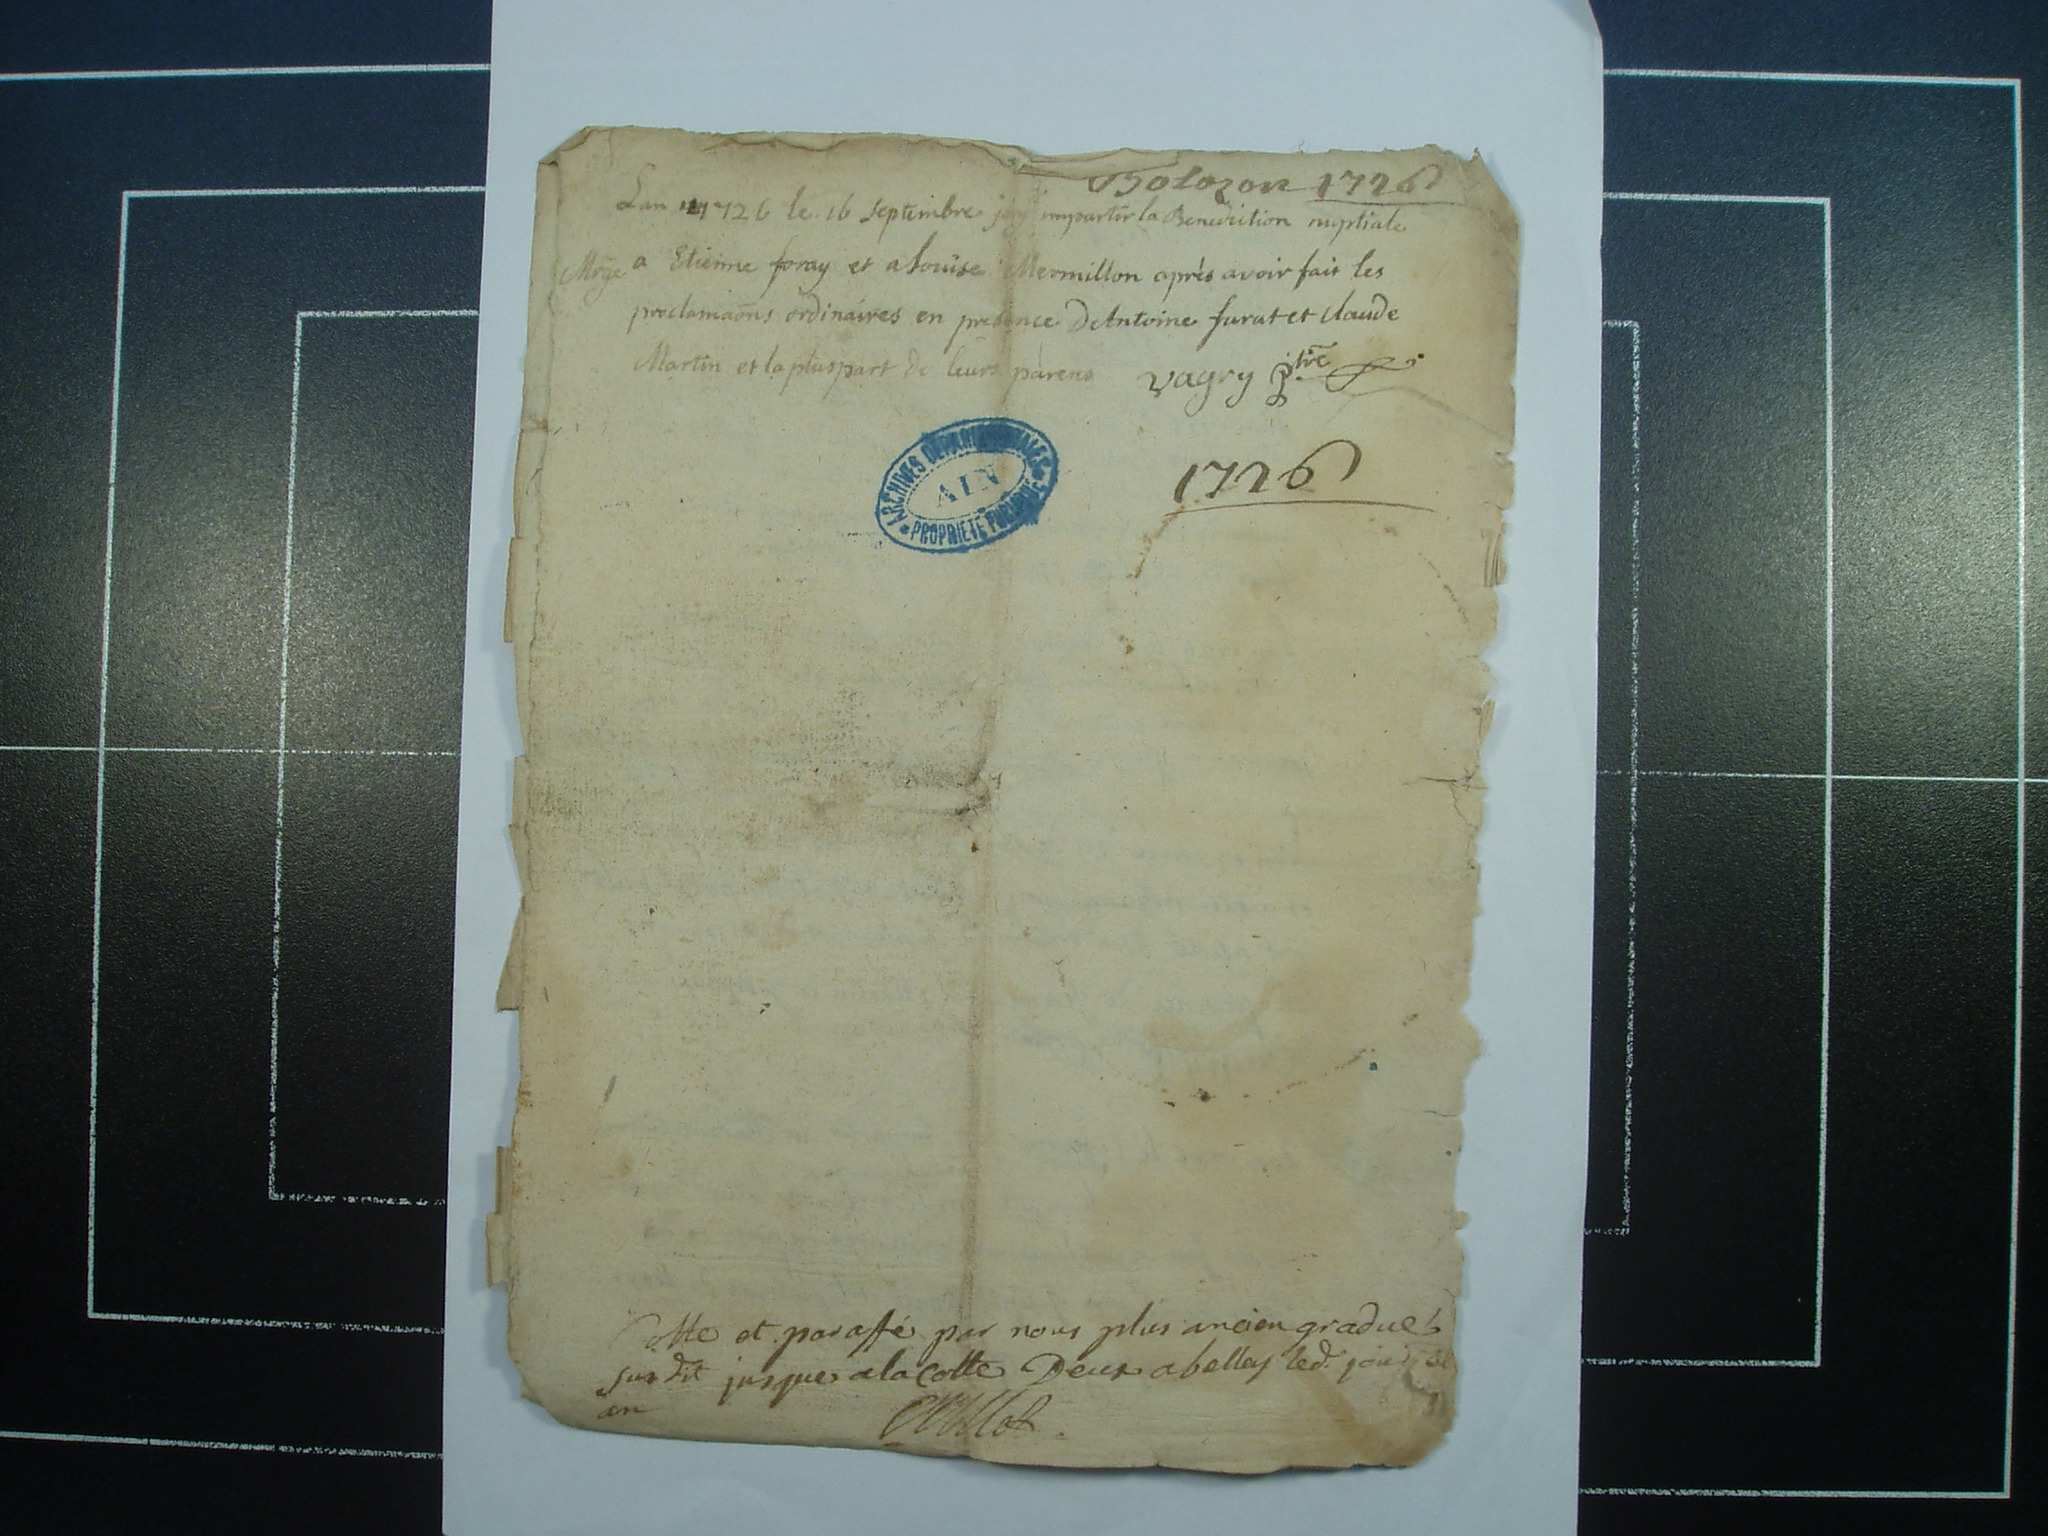 Bolozon 1726
Lan 1726 le 16 septembre jay impartir la Benediction nuptiale
Mrge a Etienne foray et a Louise Mermillon après avoir fait les
proclamaõns ordinaires en presence De Antoine furat et Claude
Martin et la pluspart de leurs parens Vagry Ptre
1726
ARCHIVES DÉPARTEMENTALES
AIN
PROPRIÉTÉ PUBLIQUE
Cotte et paraffé par nous plus ancien gradué
susdit jusques a la Cotte Deux a belley led. jour et
an